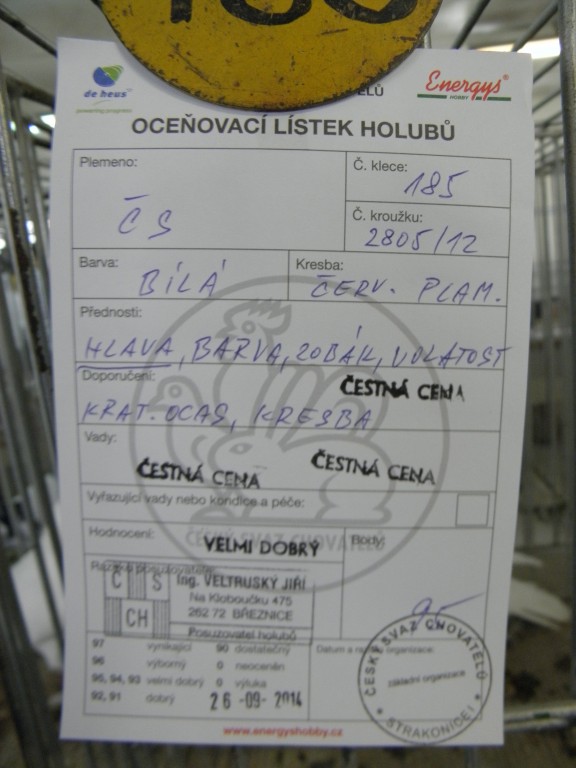 185
de heus
powering progress
Energys®
HOBBY
OCEŇOVACÍ LÍSTEK HOLUBŮ
Plemeno:
ČS
Č. klece:
185
Č. kroužku:
2805/12
Barva:
BÍLÁ
Kresba:
ČERV. PLAM.
Přednosti:
HLAVA, BARVA, ZOBÁK, VOLATOST
Doporučení:
ČESTNÁ CENA
KRAT. OCAS, KRESBA
Vady:
ČESTNÁ CENA
ČESTNÁ CENA
Vyřazující vady nebo kondice a péče:
ČESKÝ SVAZ CHOVATELŮ
Hodnocení:
VELMI DOBRÝ
Body:
95
Razítko posuzovatele:
Č S
CH
Ing. VELTRUSKÝ JIŘÍ
Na Kloboučku 475
262 72 BŘEZNICE
Posuzovatel holubů
97 vynikající 90 dostatečný
96 výborný 0 neoceněn
95, 94, 93 velmi dobrý 0 výluka
92, 91 dobrý
26 -09- 2014
Datum a organizace:
ČESKÝ SVAZ CHOVATELŮ
základní organizace
STRAKONICE I
www.energyshobby.cz